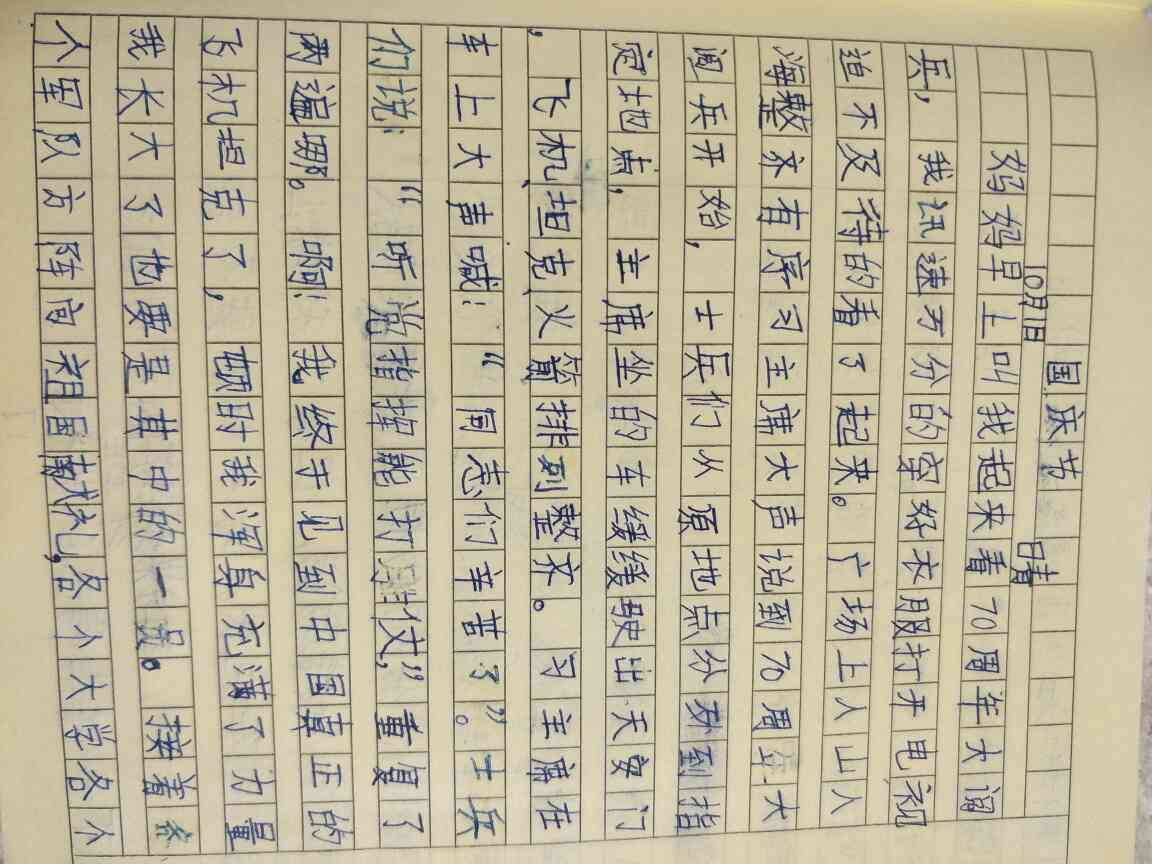 国庆节
10月1日 晴
妈妈早上叫我起来看70周年大阅
兵，我讯速万分的穿好衣服打开电视
迫不及待的看了起来。广场上人山人
海整齐有序习主席大声说到70周年大
阅兵开始，士兵们从原地点分列到指
定地点，主席坐的车缓缓驶出天安门
，飞机、坦克、火箭排列整齐。习主席在
车上大声喊：“同志们辛苦了”。士兵
们说：“听党指挥能打胜仗，”重复了
两遍哪。啊！我终于见到中国真正的
飞机坦克了，顿时我浑身充满了力量
我长大了也要是其中的一员。接着各
个军队方阵向祖国献礼，各个大学各个